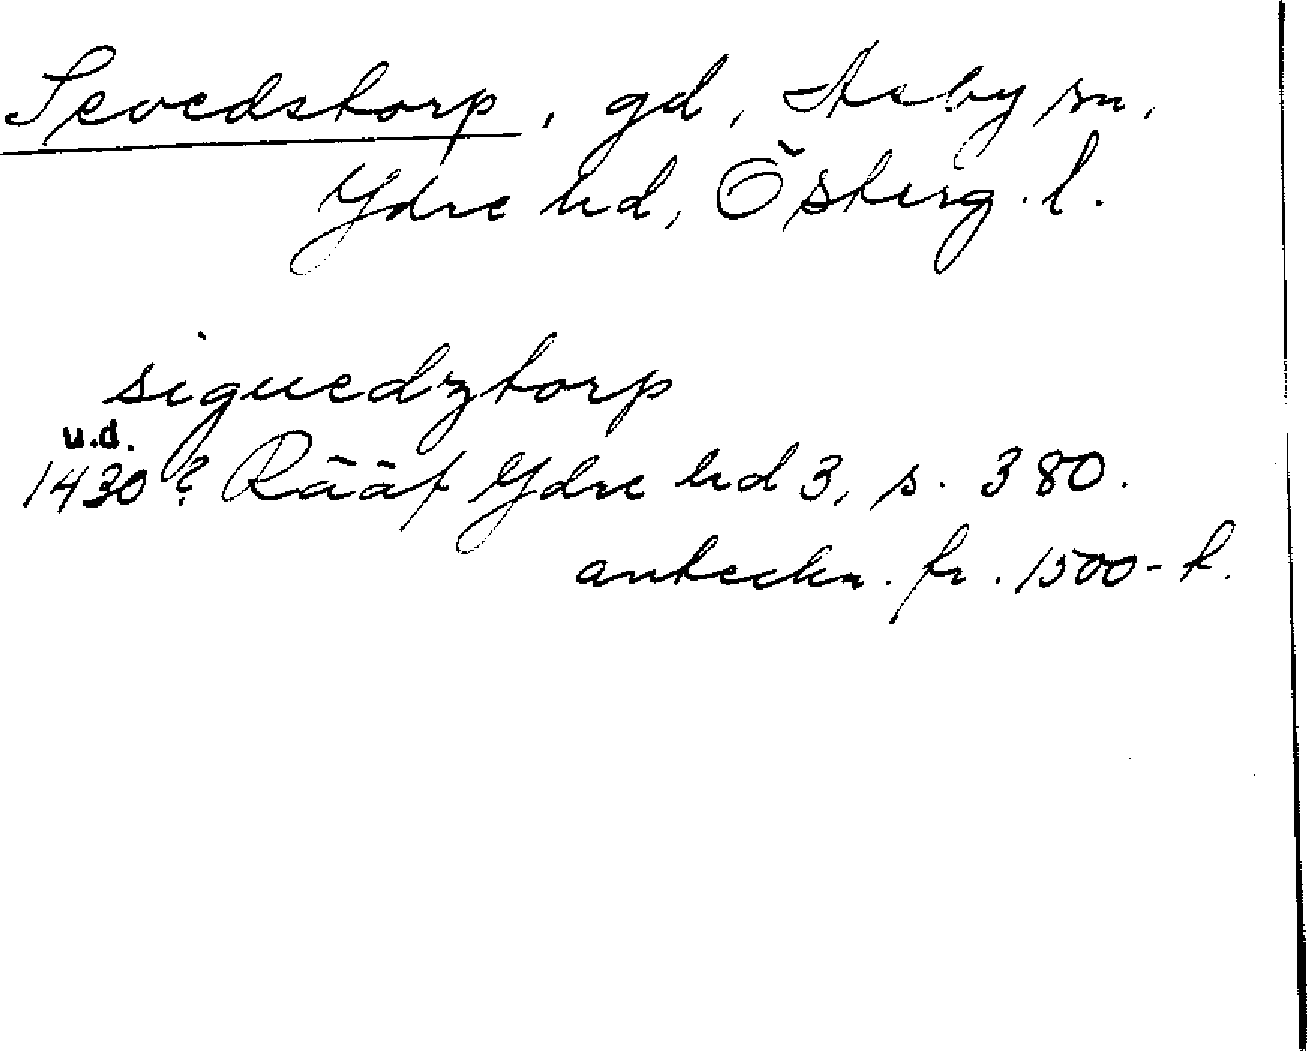 Sevedstorp, gd, Asby sn,
Ydre hd, Österg. l.
siguedztorp
u.d.
1430? Rääf Ydre hd 3, s. 380.
anteckn. fr. 1500-t.